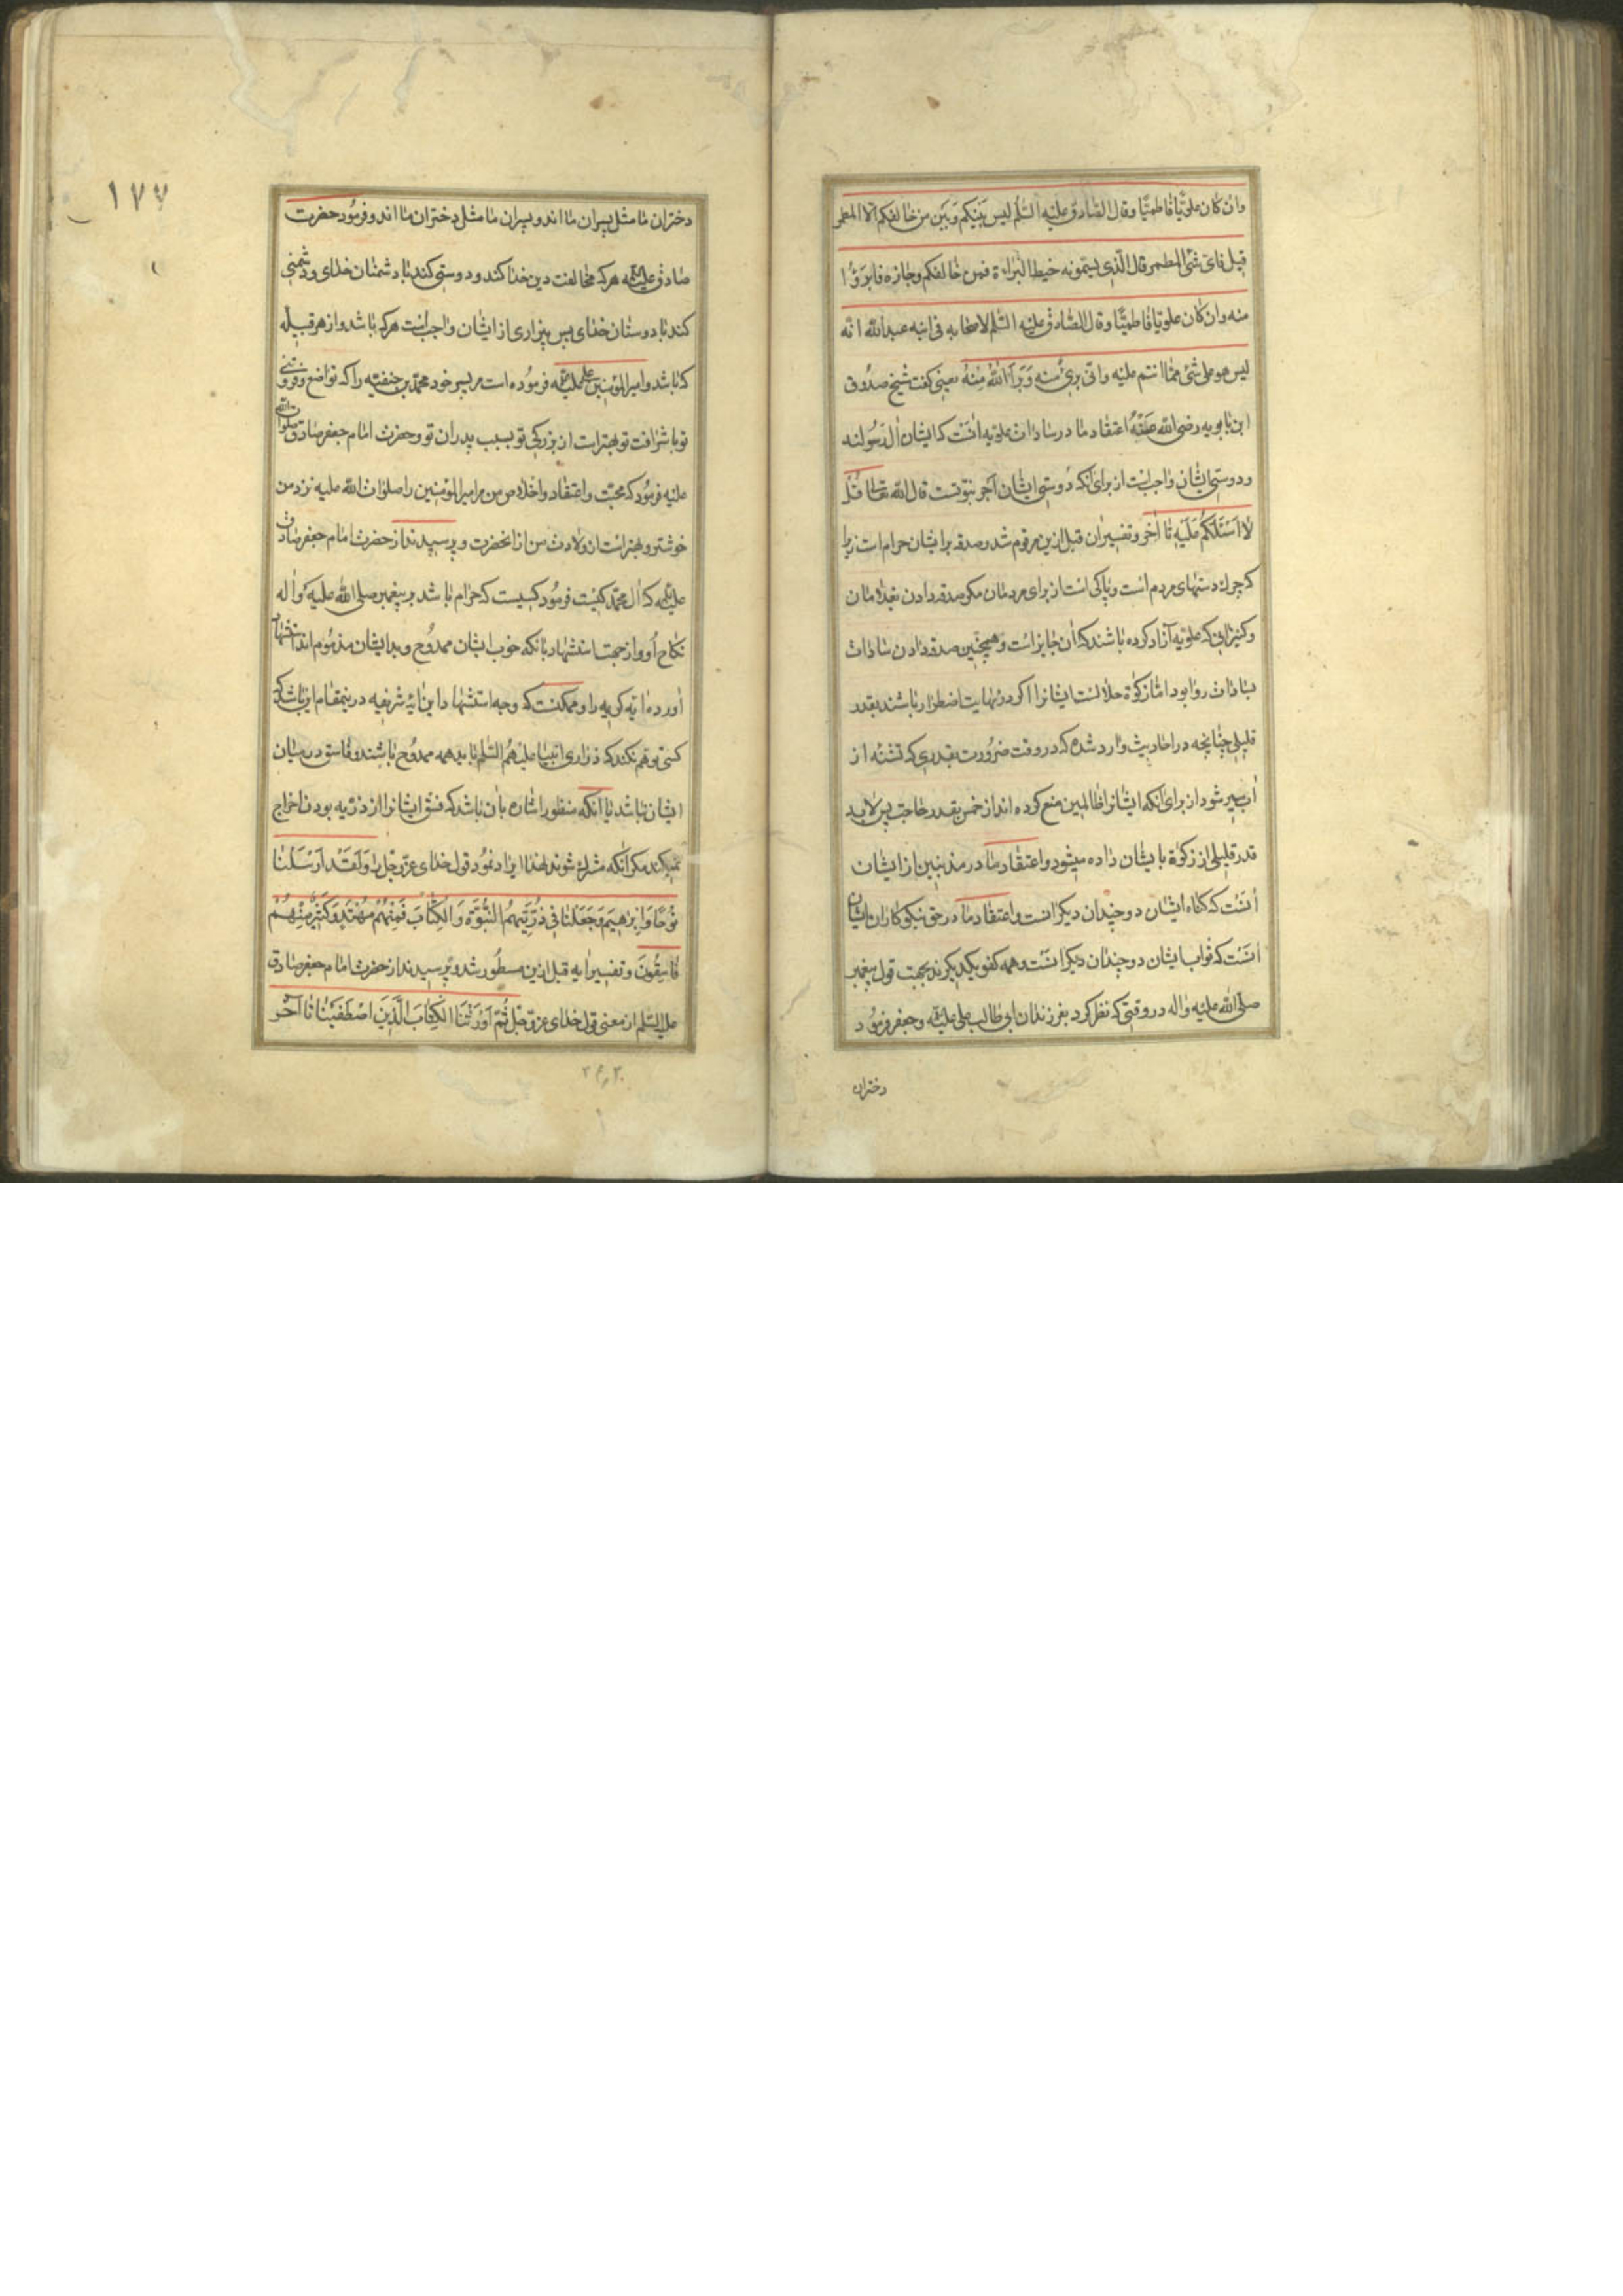 وان كان علويّا فاطميّا وقال الصّادق عليه السّلم ليس بينكم وبين من خالفكم الّا المطمر
قيل فاىّ شىّ المطمر قال الّذى يسمّونه خيط البراءة فمن خالفكم وجازه فابرؤا
منه وان كان علويّا فاطميّا وقال الصّادق عليه السّلم لاصحابه فى ابنه عبد الله انّه
ليس هو على شئ ممّا انتم عليه وانّى برئ منه وبرأ الله منه يعنى كفت شيخ صدوق
ابن بابويه رضى الله عنه اعتقاد ما در سادات علويه انست كه ايشان ال رسولند
ودوستى ايشان واجبست از براى انكه دوستى ايشان اجر نبوتست قال الله تعالى قل
لا اسئلكم عليه تا آخر وتفسير ان قبل ازين مرقوم شد وصدقه بر ايشان حرام است زيرا
كه چرك دستهاى مردم است وپاكى است از براى مردمان مكر صدقه دادن بغلامان
وكنيزانى كه علويه آزاد كرده باشند كه ان جايز است وهمچنين صدقه دادن سادات
بسادات روا بود امّا زكوة حلالست ايشانرا اكر در نهايت اضطرار باشند بقدر
قليلى چنانچه در احاديث وارد شده كه در وقت ضرورت بقدرى كه تشنه از
آب سير شود از براى انكه ايشانرا ظالمين منع كرده اند از خمس بقدر حاجت پس لابد
قدر قليلى از زكوة بايشان داده ميشود واعتقاد ما در مذنبين از ايشان
انست كه كناه ايشان دو چندان ديكرانست واعتقاد ما در حق نيكوكاران ايشان
انست كه ثواب ايشان دو چندان ديكرانست وهمه كفو يكديكرند بجهت قول پيغمبر
صلّى الله عليه واله در وقتى كه نظر كرد بفرزندان ابى طالب على عليه وجعفر فرمود
دختران
١٧٧
دختران ما مثل پسران ما اند وپسران ما مثل دختران ما اند وفرمود حضرت
صادق عليه هركه مخالفت دين خدا كند ودوستى كند با دشمنان خداى ودشمنى
كند با دوستان خداى پس بيزارى از ايشان واجبست هركه باشد واز هر قبيله
كه باشد وامير المؤمنين على عليه فرموده است مر پسر خود محمّد بن حنفيّه را كه تواضع وفروتنى
تو با شرافت تو بهتر است از بزركى تو بسبب پدران تو وحضرت امام جعفر صادق صلوات الله
عليه فرمود كه محبّت واعتقاد واخلاص من مر امير المؤمنين را صلوات الله عليه نزد من
خوشتر وبهتر است از ولادت من از انحضرت وپرسيدند از حضرت امام جعفر صادق
عليه كه ال محمّد كيست فرمود كسيست كه حرام باشد بر پيغمبر صلى الله عليه واله
نكاح او واز جهت استشهاد بانكه خوب ايشان ممدوح وبد ايشان مذموم اند استشهاد
آورده ايه كريمه را وممكنست كه وجه استشهاد اين ايه شريفه در ينمقام اين باشد كه
كسى توهم نكند كه ذرارى انبيا عليهم السّلم بايد همه ممدوح باشند وفاسق در ميان
ايشان نباشد يا انكه منظور اشاره بان باشد كه فسق ايشانرا از ذريّه بودن اخراج
نميكند مكر انكه مشرك شوند لهذا ايراد نمود قول خداى عزّ وجلّ را ولقد ارسلنا
نوحا وابرهيم وجعلنا فى ذرّيّتهم النّبوّة والكتاب فمنهم مهتد وكثير منهم
فاسقون وتفسير ايه قبل ازين مسطور شد وپرسيدند از حضرت امام جعفر صادق
عليه السّلم از معنى قول خداى عزّ وجلّ ثمّ اورثنا الكتاب الّذين اصطفينا تا آخر